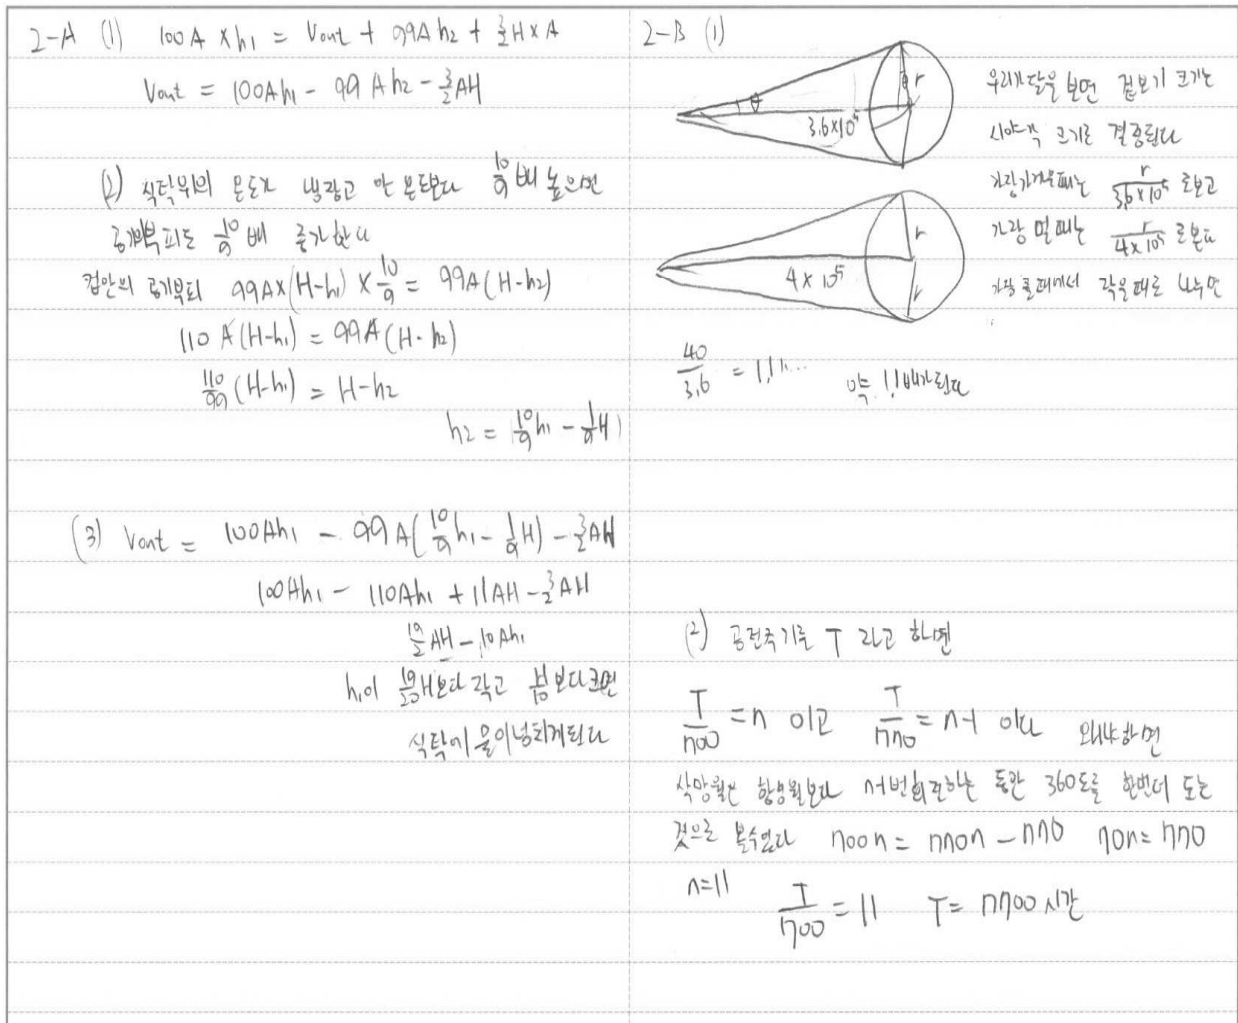 2-A (1) 100A × h₁ = Vout + 99Ah₂ + 3/2 H × A
Vout = 100Ah₁ - 99Ah₂ - 3/2 AH
(2) 식탁위의 온도가 냉장고 안 온도보다 10/9 배 높으면
공기부피도 10/9 배 증가한다
컵안의 공기부피 99A×(H-h₁) × 10/9 = 99A(H-h₂)
110 A(H-h₁) = 99A(H-h₂)
110/99 (H-h₁) = H-h₂
h₂ = 10/9 h₁ - 1/9 H
(3) Vout = 100Ah₁ - 99A(10/9 h₁ - 1/9 H) - 3/2 AH
100Ah₁ - 110Ah₁ + 11AH - 3/2 AH
19/2 AH - 10Ah₁
h₁이 19/20 H보다 작고 보다 크면
식탁에 물이넘치게된다
2-B (1)
θ θ r
3.6×10⁵
r
4 × 10⁵
r
우리가 달을 보면 겉보기 크기는
시야각 크기로 결정된다
가장가까울때는 r/3.6×10⁵ 로보고
가장 멀때는 r/4×10⁵ 로본다
가장 클때에서 작을때로 나누면
40/3.6 = 1.11... 약 1.1배가된다
(2) 공전주기를 T 라고 하면
T/700 = n 이고 T/770 = n-1 이다 왜냐하면
삭망월은 항성월보다 회전하는 동안 360도를 한번더 도는
것으로 볼수있다 700n = 770n - 770 70n = 770
n=11 T/700 = 11 T = 7700 시간